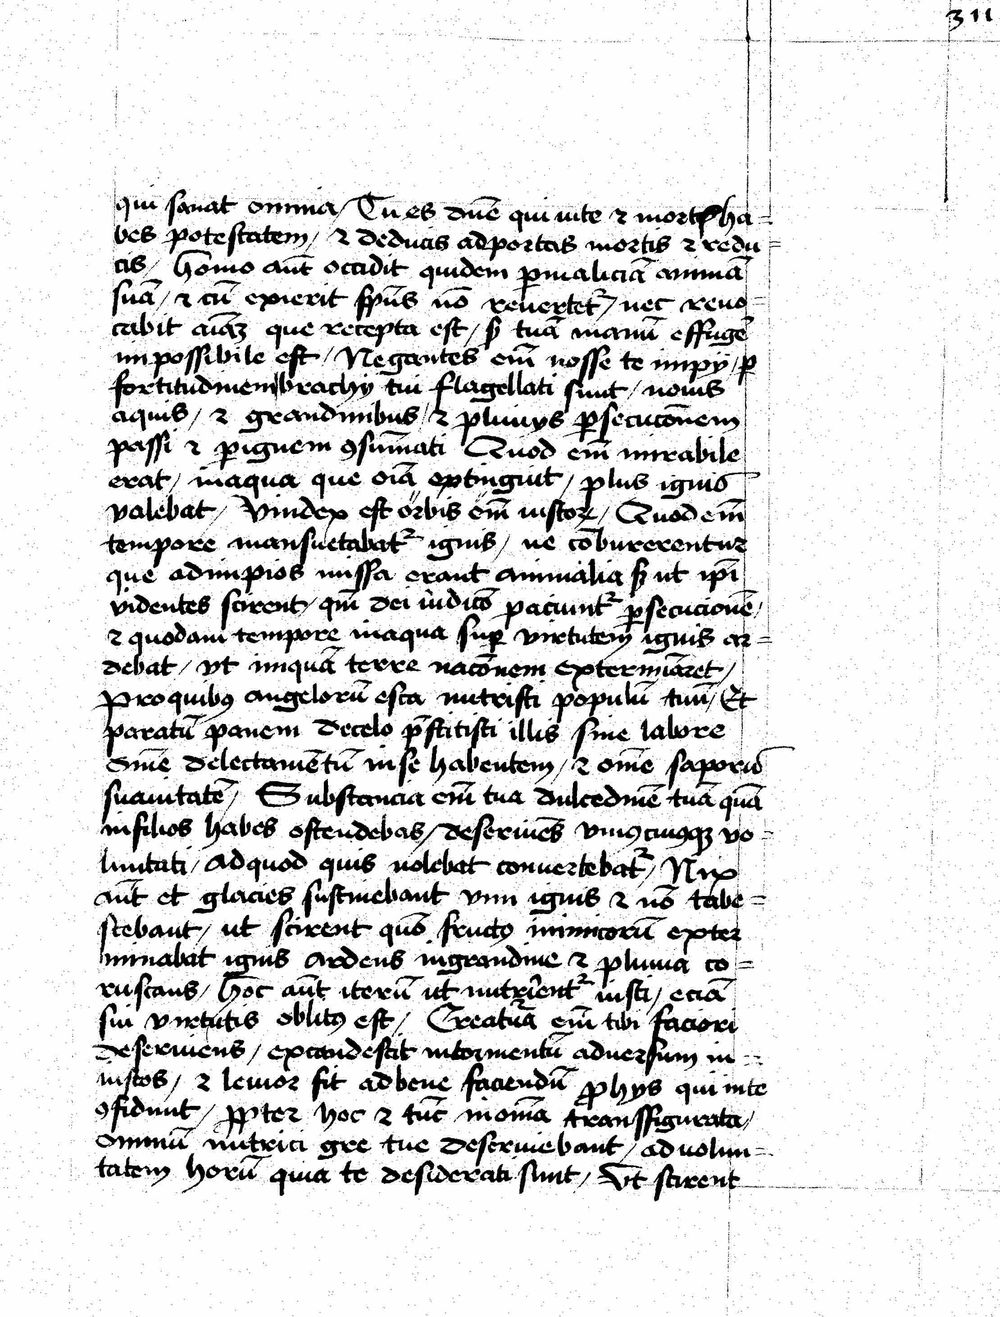 311
qui sanat omnia / Tu es dn̄e qui uite ⁊ mortꝭ ha=
bes potestatem / ⁊ deducis adportas mortis ⁊ redu=
cis / Homo aut̄ occidit quidem ꝑmaliciā animā
suā / ⁊ cū exierit sp̄us nō reuertet᷑ / nec reuo=
cabit aīaꝫ que recepta est / sꝫ tuā manū effuge᷑
impossibile est / Negantes em̄ nosse te impij / ꝑ
fortitudinem brachij tui flagellati sunt / nouis
aquis / ⁊ grandinibus / ⁊ pluuijs ꝑsecucōnem
passi ⁊ ꝑignem ꝯsum̄ati Quod em̄ mirabile
erat / inaqua que oīa extinguit / plus ignis
valebat / Vindex est orbis em̄ iustoꝝ / Quodem̄
tempore mansuetabat᷑ ignis / ne cōburerentur
que adimpios missa erant animalia sꝫ ut ip̄i
videntes scirent / qm̄ dei iudicō paciunt᷑ ꝑsecucionē /
⁊ quodam tempore inaqua suꝑ virtutem ignis ar=
debat / vt iniquā terre nacōnem exterminaret /
Proquibꝰ angelorū esca nutristi populū tuū / Et
paratū panem decelo p̄stitisti illis sine labore
Om̄e delectamentū inse habentem / ⁊ om̄e saporis
suauitatē / Substancia em̄ tua dulcedinē tuā quā
infilios habes ostendebas / deseruiēs vniuscuiusqꝫ uo=
luntati / adquod quis uolebat conuertebat᷑ / Nix
aut̄ et glacies sustinebant vim ignis ⁊ nō tabe=
scebant / ut scirent quō fructꝰ inimicorū exter
minabat ignis ardens ingrandine ⁊ pluuia co=
ruscans / Hoc aut̄ iterū ut nutrirent᷑ iusti / eciā
sui virtutis oblitꝰ est / Creatura em̄ tibi factori
deseruiens / excandescit intormentū aduersum in=
iustos / ⁊ leuior fit adbene faciendū ꝓhijs qui inte
ꝯfidunt / ꝓpter hoc ⁊ tūc inom̄ia transfigurata /
omniū nutrici gr̄e tue deseruiebant / aduolun=
tatem horū quia te desiderati sunt / Vt scirent